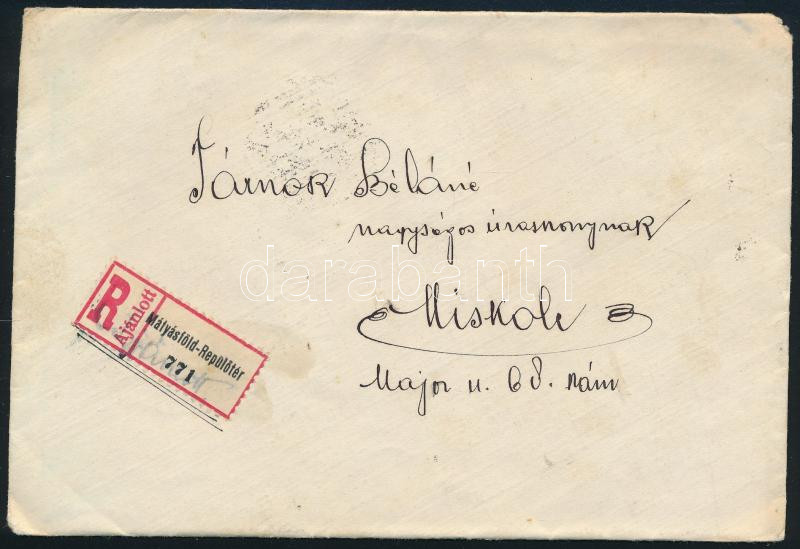 Tárnok Béláné
nagyságos úrasszonynak
Miskolc
Major u. 68. szám
R
Ajánlott
Mátyásföld-Repülőtér
771
darabanth